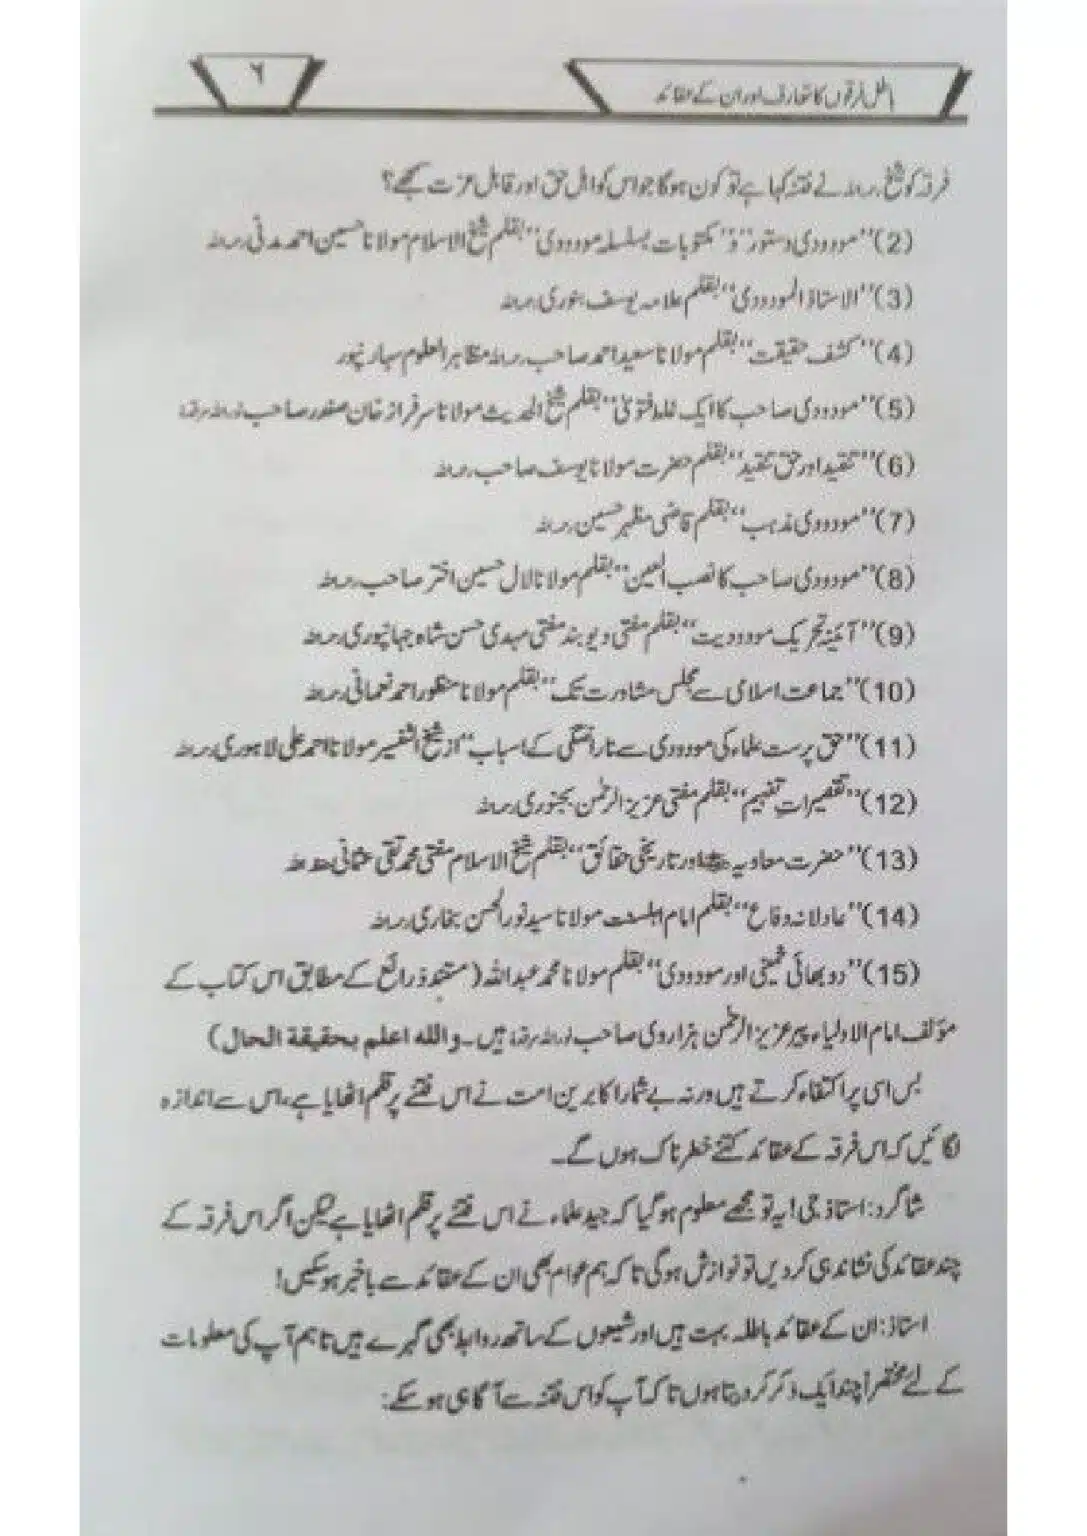 باطل فرقوں کا تعارف اور ان کے عقائد
۶
فرقہ کو شیخ رحمہ اللہ نے فتنہ کہا ہے تو کون ہوگا جو اس کو اہل حق اور قابل عزت سمجھے؟
(2)"مودودی دستور" و "مکتوبات بسلسلہ مودودی" بقلم شیخ الاسلام مولانا حسین احمد مدنی رحمہ اللہ
(3)"الاستاذ المودودی" بقلم علامہ یوسف بنوری رحمہ اللہ
(4)"کشف حقیقت" بقلم مولانا سعید احمد صاحب رحمہ اللہ مظاہر العلوم سہارنپور
(5)"مودودی صاحب کا ایک غلط فتویٰ" بقلم شیخ الحدیث مولانا سرفراز خان صفدر صاحب نور اللہ مرقدہ
(6)"تنقید اور حق تنقید" بقلم حضرت مولانا یوسف صاحب رحمہ اللہ
(7)"مودودی مذہب" بقلم قاضی مظہر حسین رحمہ اللہ
(8)"مودودی صاحب کا نصب العین" بقلم مولانا لال حسین اختر صاحب رحمہ اللہ
(9)"آئینہ تحریک مودودیت" بقلم مفتی دیوبند مفتی مہدی حسن شاہ جہانپوری رحمہ اللہ
(10)"جماعت اسلامی سے مجلس مشاورت تک" بقلم مولانا منظور احمد نعمانی رحمہ اللہ
(11)"حق پرست علماء کی مودودی سے ناراضگی کے اسباب" از شیخ التفسیر مولانا احمد علی لاہوری رحمہ اللہ
(12)"تقصیرات تفہیم" بقلم مفتی عزیز الرحمٰن بجنوری رحمہ اللہ
(13)"حضرت معاویہ ؓ اور تاریخی حقائق" بقلم شیخ الاسلام مفتی محمد تقی عثمانی حفظہ اللہ
(14)"عادلانہ دفاع" بقلم امام اہلسنت مولانا سید نور الحسن بخاری رحمہ اللہ
(15)"دو بھائی خمینی اور مودودی" بقلم مولانا محمد عبداللہ (مستند ذرائع کے مطابق اس کتاب کے
مؤلف امام الاولیاء پیر عزیز الرحمٰن ہزاروی صاحب نور اللہ مرقدہ ہیں۔ واللہ اعلم بحقیقۃ الحال)
بس اسی پر اکتفاء کرتے ہیں ورنہ بے شمار اکابرین امت نے اس فتنے پر قلم اٹھایا ہے، اس سے اندازہ
لگائیں کہ اس فرقہ کے عقائد کتنے خطرناک ہوں گے۔
شاگرد: استاذ جی! یہ تو مجھے معلوم ہو گیا کہ جید علماء نے اس فتنے پر قلم اٹھایا ہے لیکن اگر اس فرقہ کے
چند عقائد کی نشاندہی کر دیں تو نوازش ہوگی تاکہ ہم عوام بھی ان کے عقائد سے باخبر ہو سکیں!
استاذ: ان کے عقائد باطلہ بہت ہیں اور شیعوں کے ساتھ روابط بھی گہرے ہیں تاہم آپ کی معلومات
کے لئے مختصراً چند ایک ذکر کر دیتا ہوں تاکہ آپ کو اس فتنہ سے آگاہی ہو سکے: